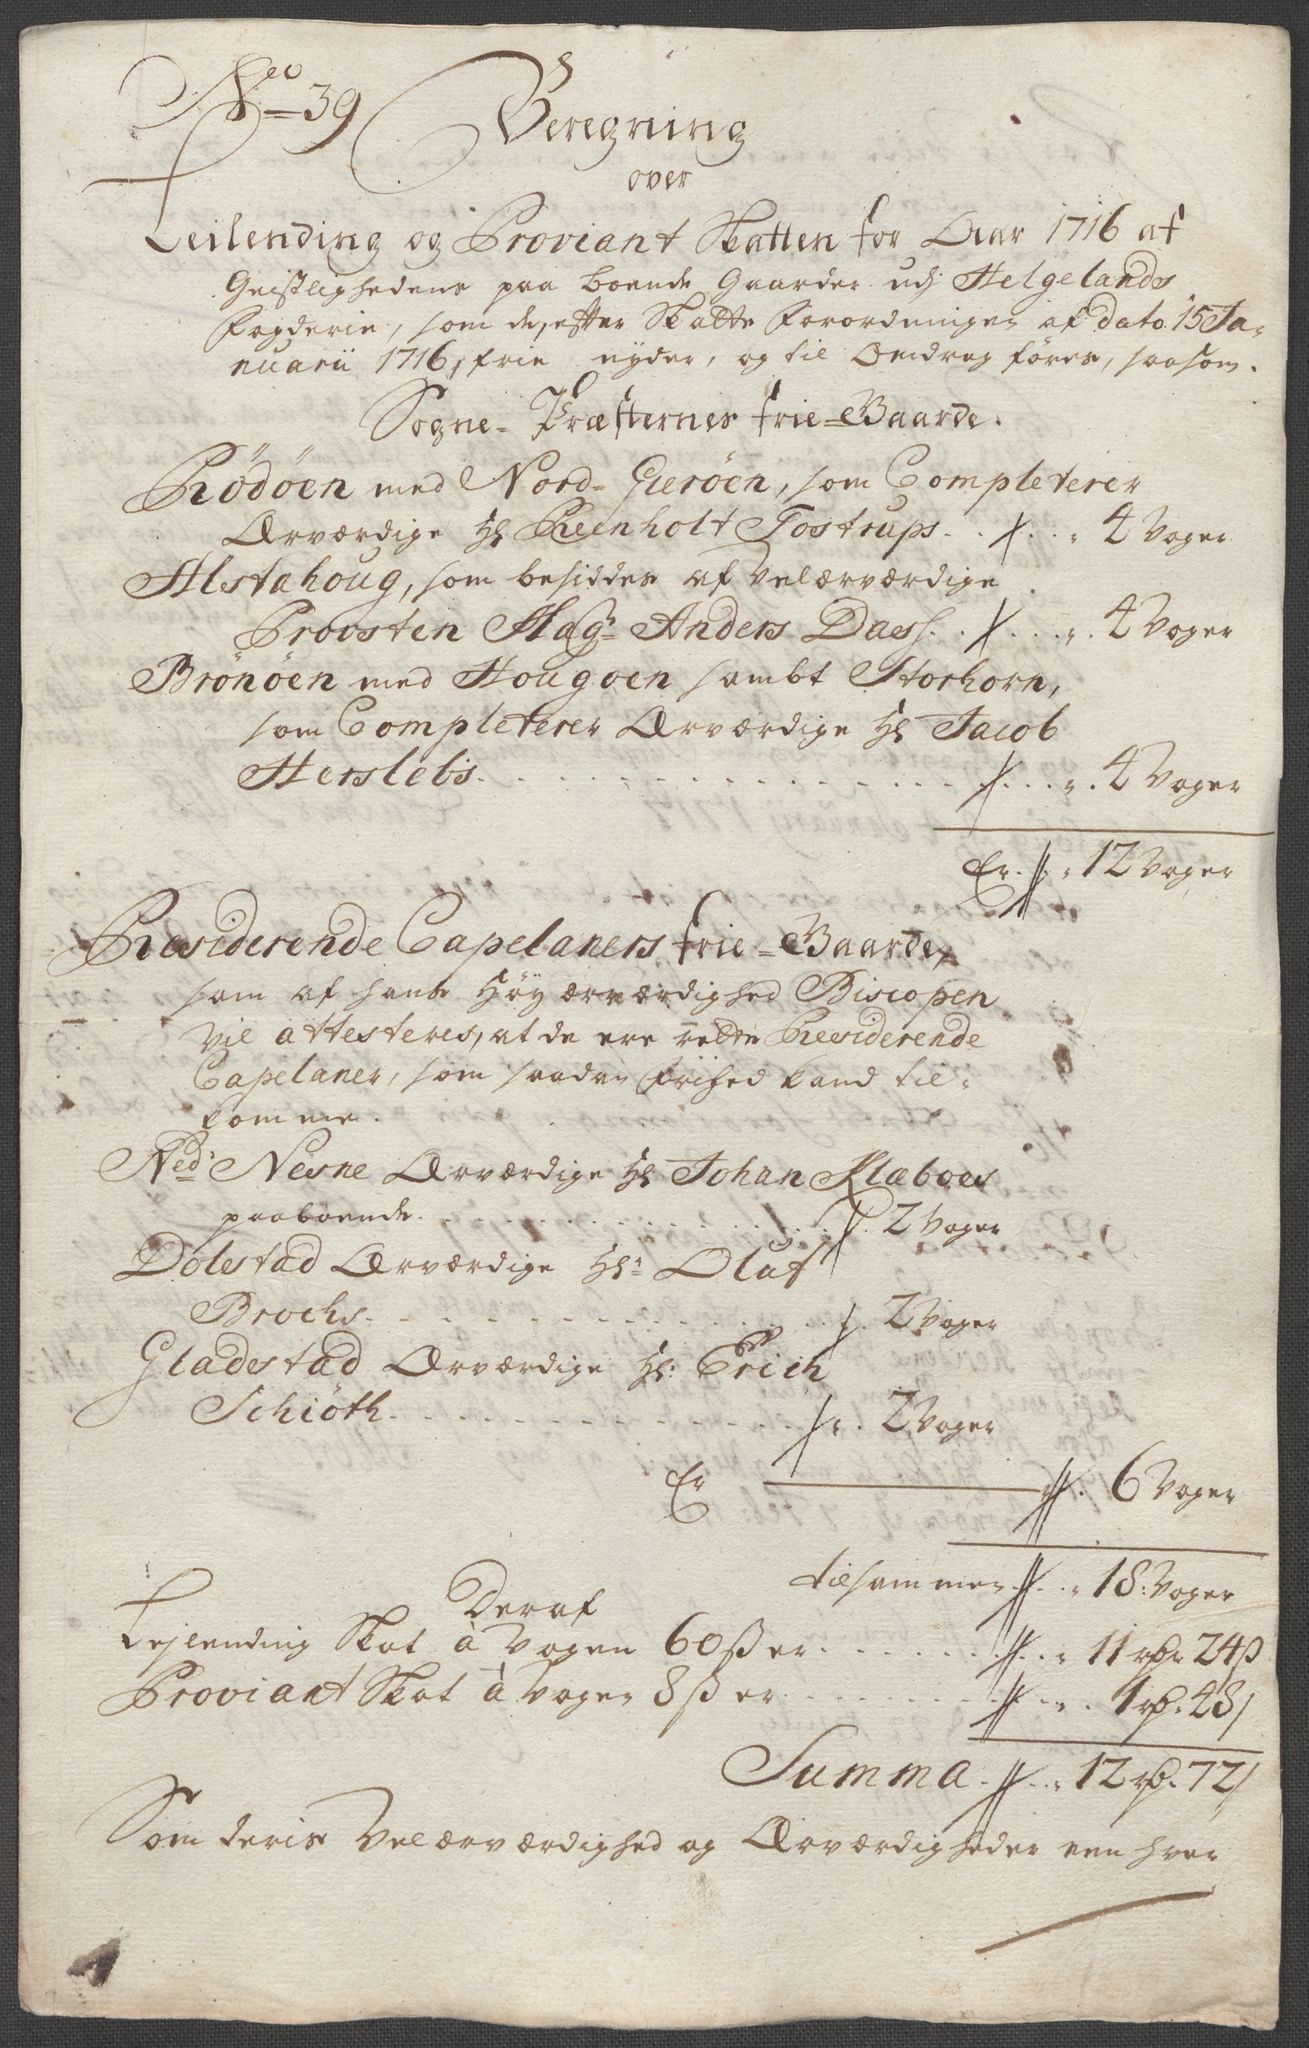 No 39
Beregning
over
Leilending og Proviant Skatten for Aar 1716 af
Geistlighedens paa boende Gaarder udj Helgelands
Fogderie, som de, efter Skatte Forordningen af dato 15 Ja-
nuarii 1716, frie nyder, og til Omdrag føres, saasom.
Sogne-Præsternes frie-Gaarde.
Rödöen med Nord-Gieröen, som Completerer
Ærværdige Hr Reinholt Tostrups . . . 4 Voger
Alstahoug, som besiddes af Velærværdige
Provsten Magr Anders Dass . . . 4 Voger
Brönöen med Hougoen sambt Storhorn,
som Completerer Ærværdige Hr Jacob
Herslebs . . . 4 Voger
Er . . 12 Voger
Residerende Capelaners frie-Gaarde,
som af hans Höy ærværdighed Biscopen
vil attesteres, at de ere rette Residerende
Capelaner, som saadan Friihed kand til-
komme.
Ned: Nesne Ærværdige Hr Johan Klæboes
paaboende . . . 2 Voger
Dolstad Ærværdige Hr: Oluf
Brochs . . . 2 Voger
Gladstad Ærværdige Hr: Erich
Schiöth . . . 2 Voger
Er . . 6 Voger
tilsammen . . 18: Voger
Deraf
Lejlending Skat à Vogen 60 ß er . . . 11 rdr 24 ß
Proviant Skat à Vogen 8 ß er . . . 1 rd. 48 ß
Summa . . 12 rd. 72 ß
Som deris Velærværdighed og Ærværdigheder een hver